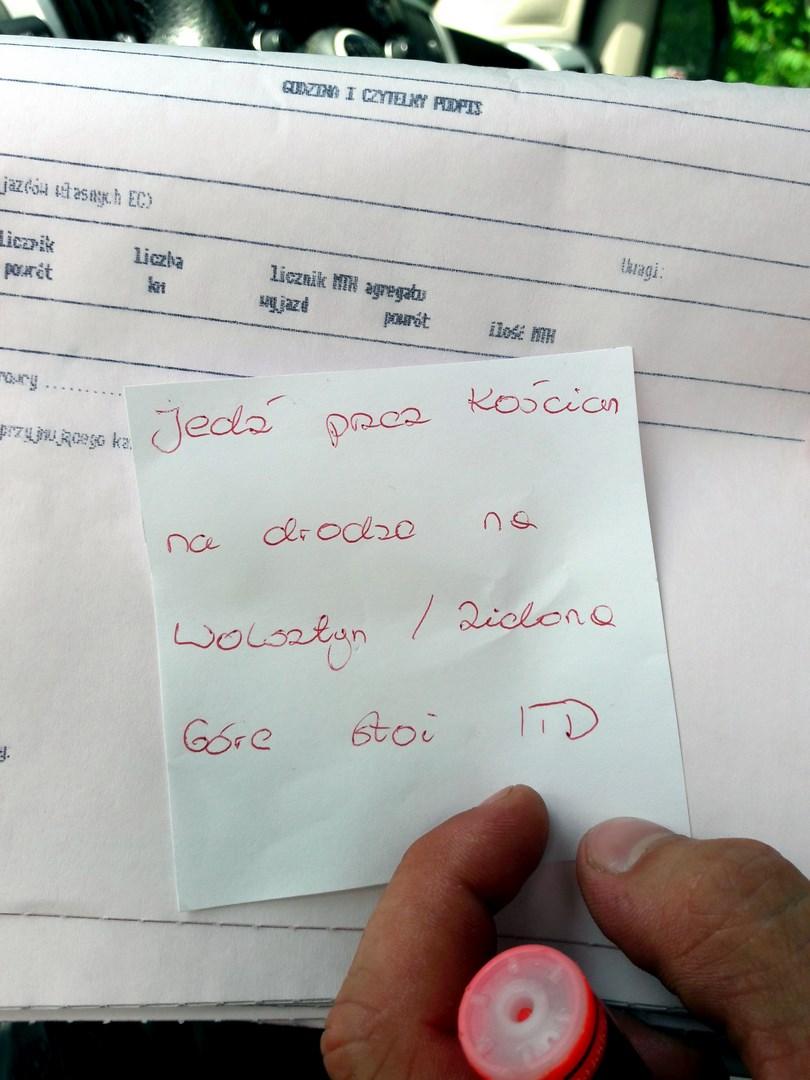 GODZINA I CZYTELNY PODPIS
jazdów własnych EC)
licznik liczba licznik MTH agregatu Uwagi:
powrót km wyjazd powrót ilość MTH
przyjmującego ka
jedź przez Kościan
na drodze na
Wolsztyn / Zielona
Górę stoi ITD